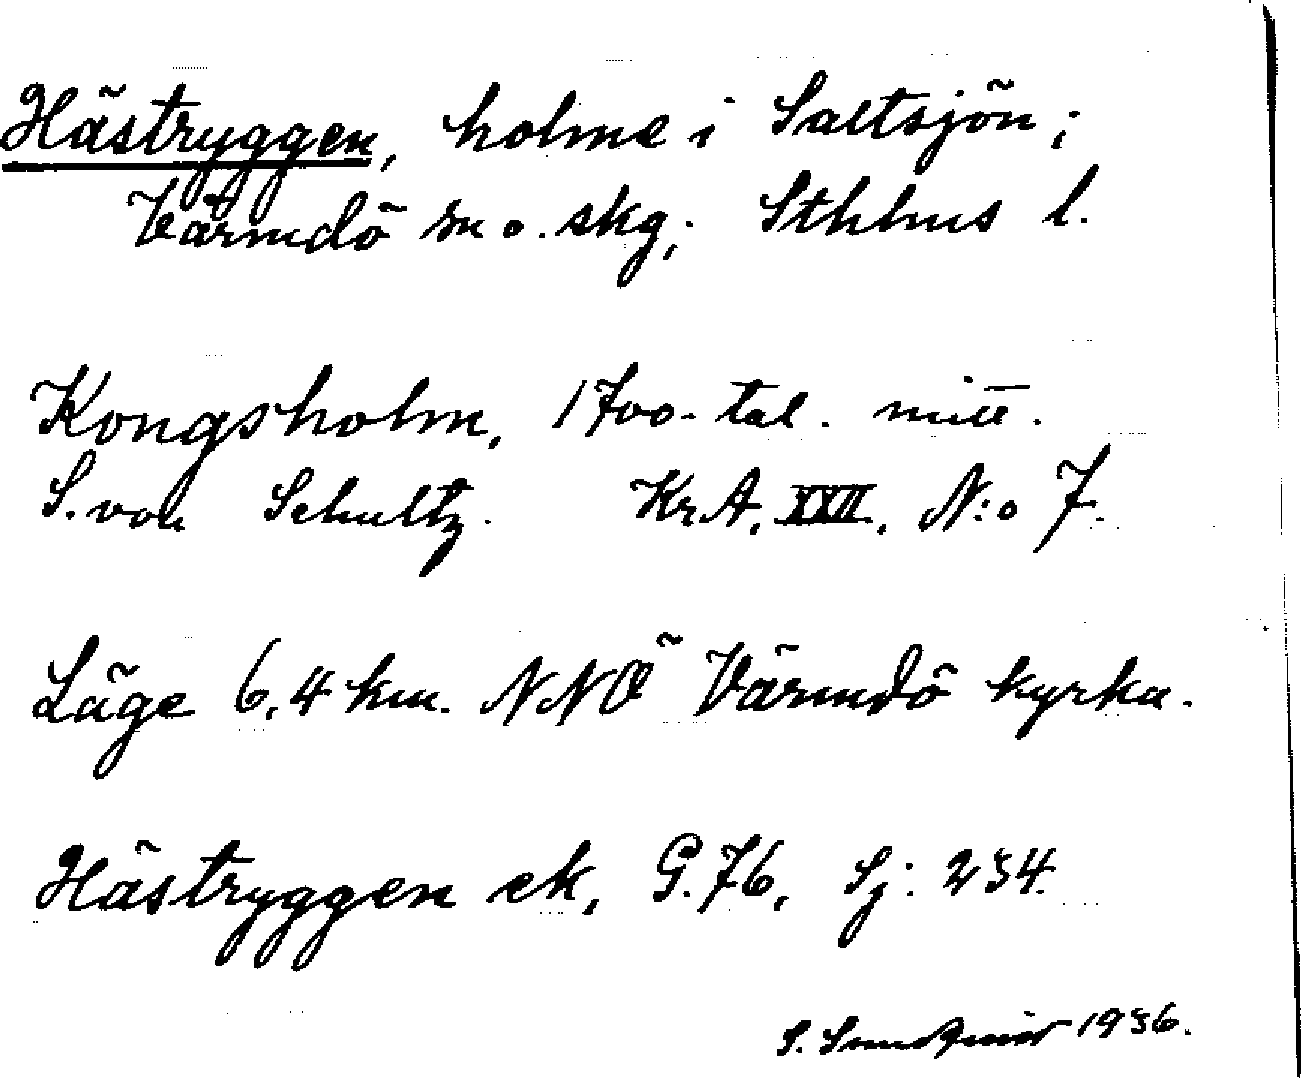 Hästryggen, holme i Saltsjön;
Värmdö sn o. skg; Sthlms l.
Kongsholm, 1700-tal. mitt.
S. von Schultz. KrA. XXII. N:o 7.
Läge 6,4 km. NNÖ Värmdö kyrka.
Hästryggen ek, G.76, Sj: 234.
S. Sundqvist 1936.